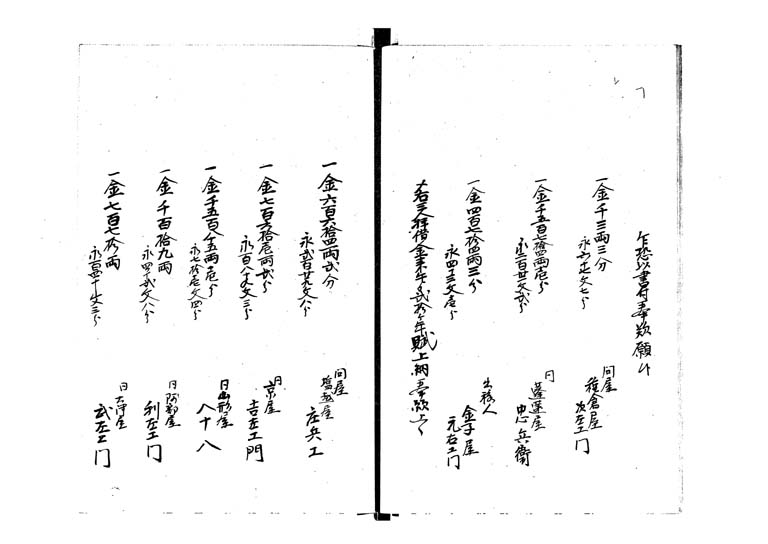 乍恐以書付奉歎願候
一金千三両三分
永 文七分
問屋
種倉屋
次左エ門
一金千五百七拾四両壱分
永百廿文弐分
同
蓬莱屋
忠兵衛
一金四百七拾四両三分
永四三文壱分
出稼人
金子屋
元右エ門
右三人拝借金来午ゟ弐拾ヶ年賦上納奉歎上候
一金六百六拾四両弐分
永弐百廿九文八分
問屋
塩越屋
庄兵エ
一金七百六拾壱両弐分
永百八十文三分
同
京屋
吉左エ門
一金千五百八五両壱分
永七拾壱文四分
同
山形屋
八十八
一金千百拾九両
永四十弐文八分
同
阿部屋
利左エ門
一金七百七拾両
永百四十文三分
同
大津屋
武左エ門